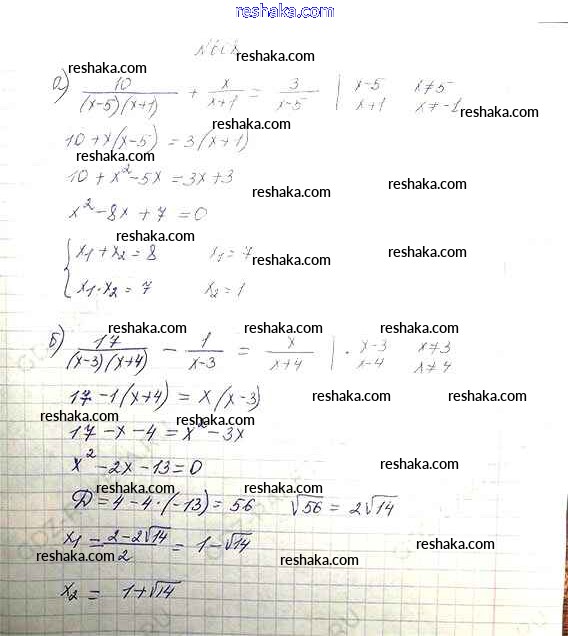 reshaka.com
reshaka.com
reshaka.com
а) 10/((x-5)(x+1)) + x/(x+1) = 3/(x-5) | x-5 x≠5
x+1 x≠-1
reshaka.com reshaka.com reshaka.com
10+x(x-5) = 3(x+1)
reshaka.com
reshaka.com
10 + x²-5x = 3x+3
reshaka.com reshaka.com
x²-8x+7=0
reshaka.com
{ x₁+x₂=8 x₁=7
reshaka.com reshaka.com
x₁·x₂=7 x₂=1
reshaka.com reshaka.com reshaka.com
б) 17/((x-3)(x+4)) - 1/(x-3) = x/(x+4) | · x-3 x≠3
x-4 x≠4
17-1(x+4) = x(x-3)
reshaka.com reshaka.com
reshaka.com reshaka.com
17-x-4=x²-3x
x²-2x-13=0
reshaka.com
reshaka.com reshaka.com
D=4-4·(-13)=56 √56=2√14
x₁=(2-2√14)/2=1-√14
reshaka.com reshaka.com reshaka.com
reshaka.com
x₂= 1+√14